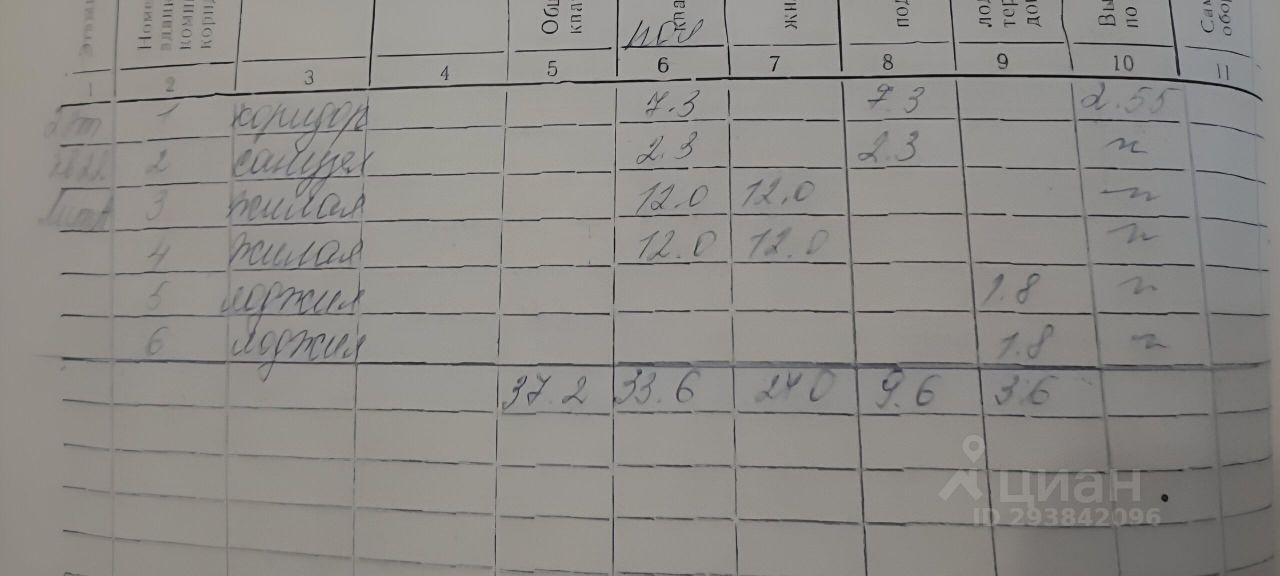 Номе Общ жи под лод Вы Сам
здани ква ква тер по обор
комн дов
корид
1 2 3 4 5 6 7 8 9 10 11
1 коридор 7.3 7.3 2.55
2 санузел 2.3 2.3 "
3 жилая 12.0 12.0 "
4 жилая 12.0 12.0 "
5 лоджия 1.8 "
6 лоджия 1.8 "
37.2 33.6 24 0 9.6 3.6
циан
ID 293842096